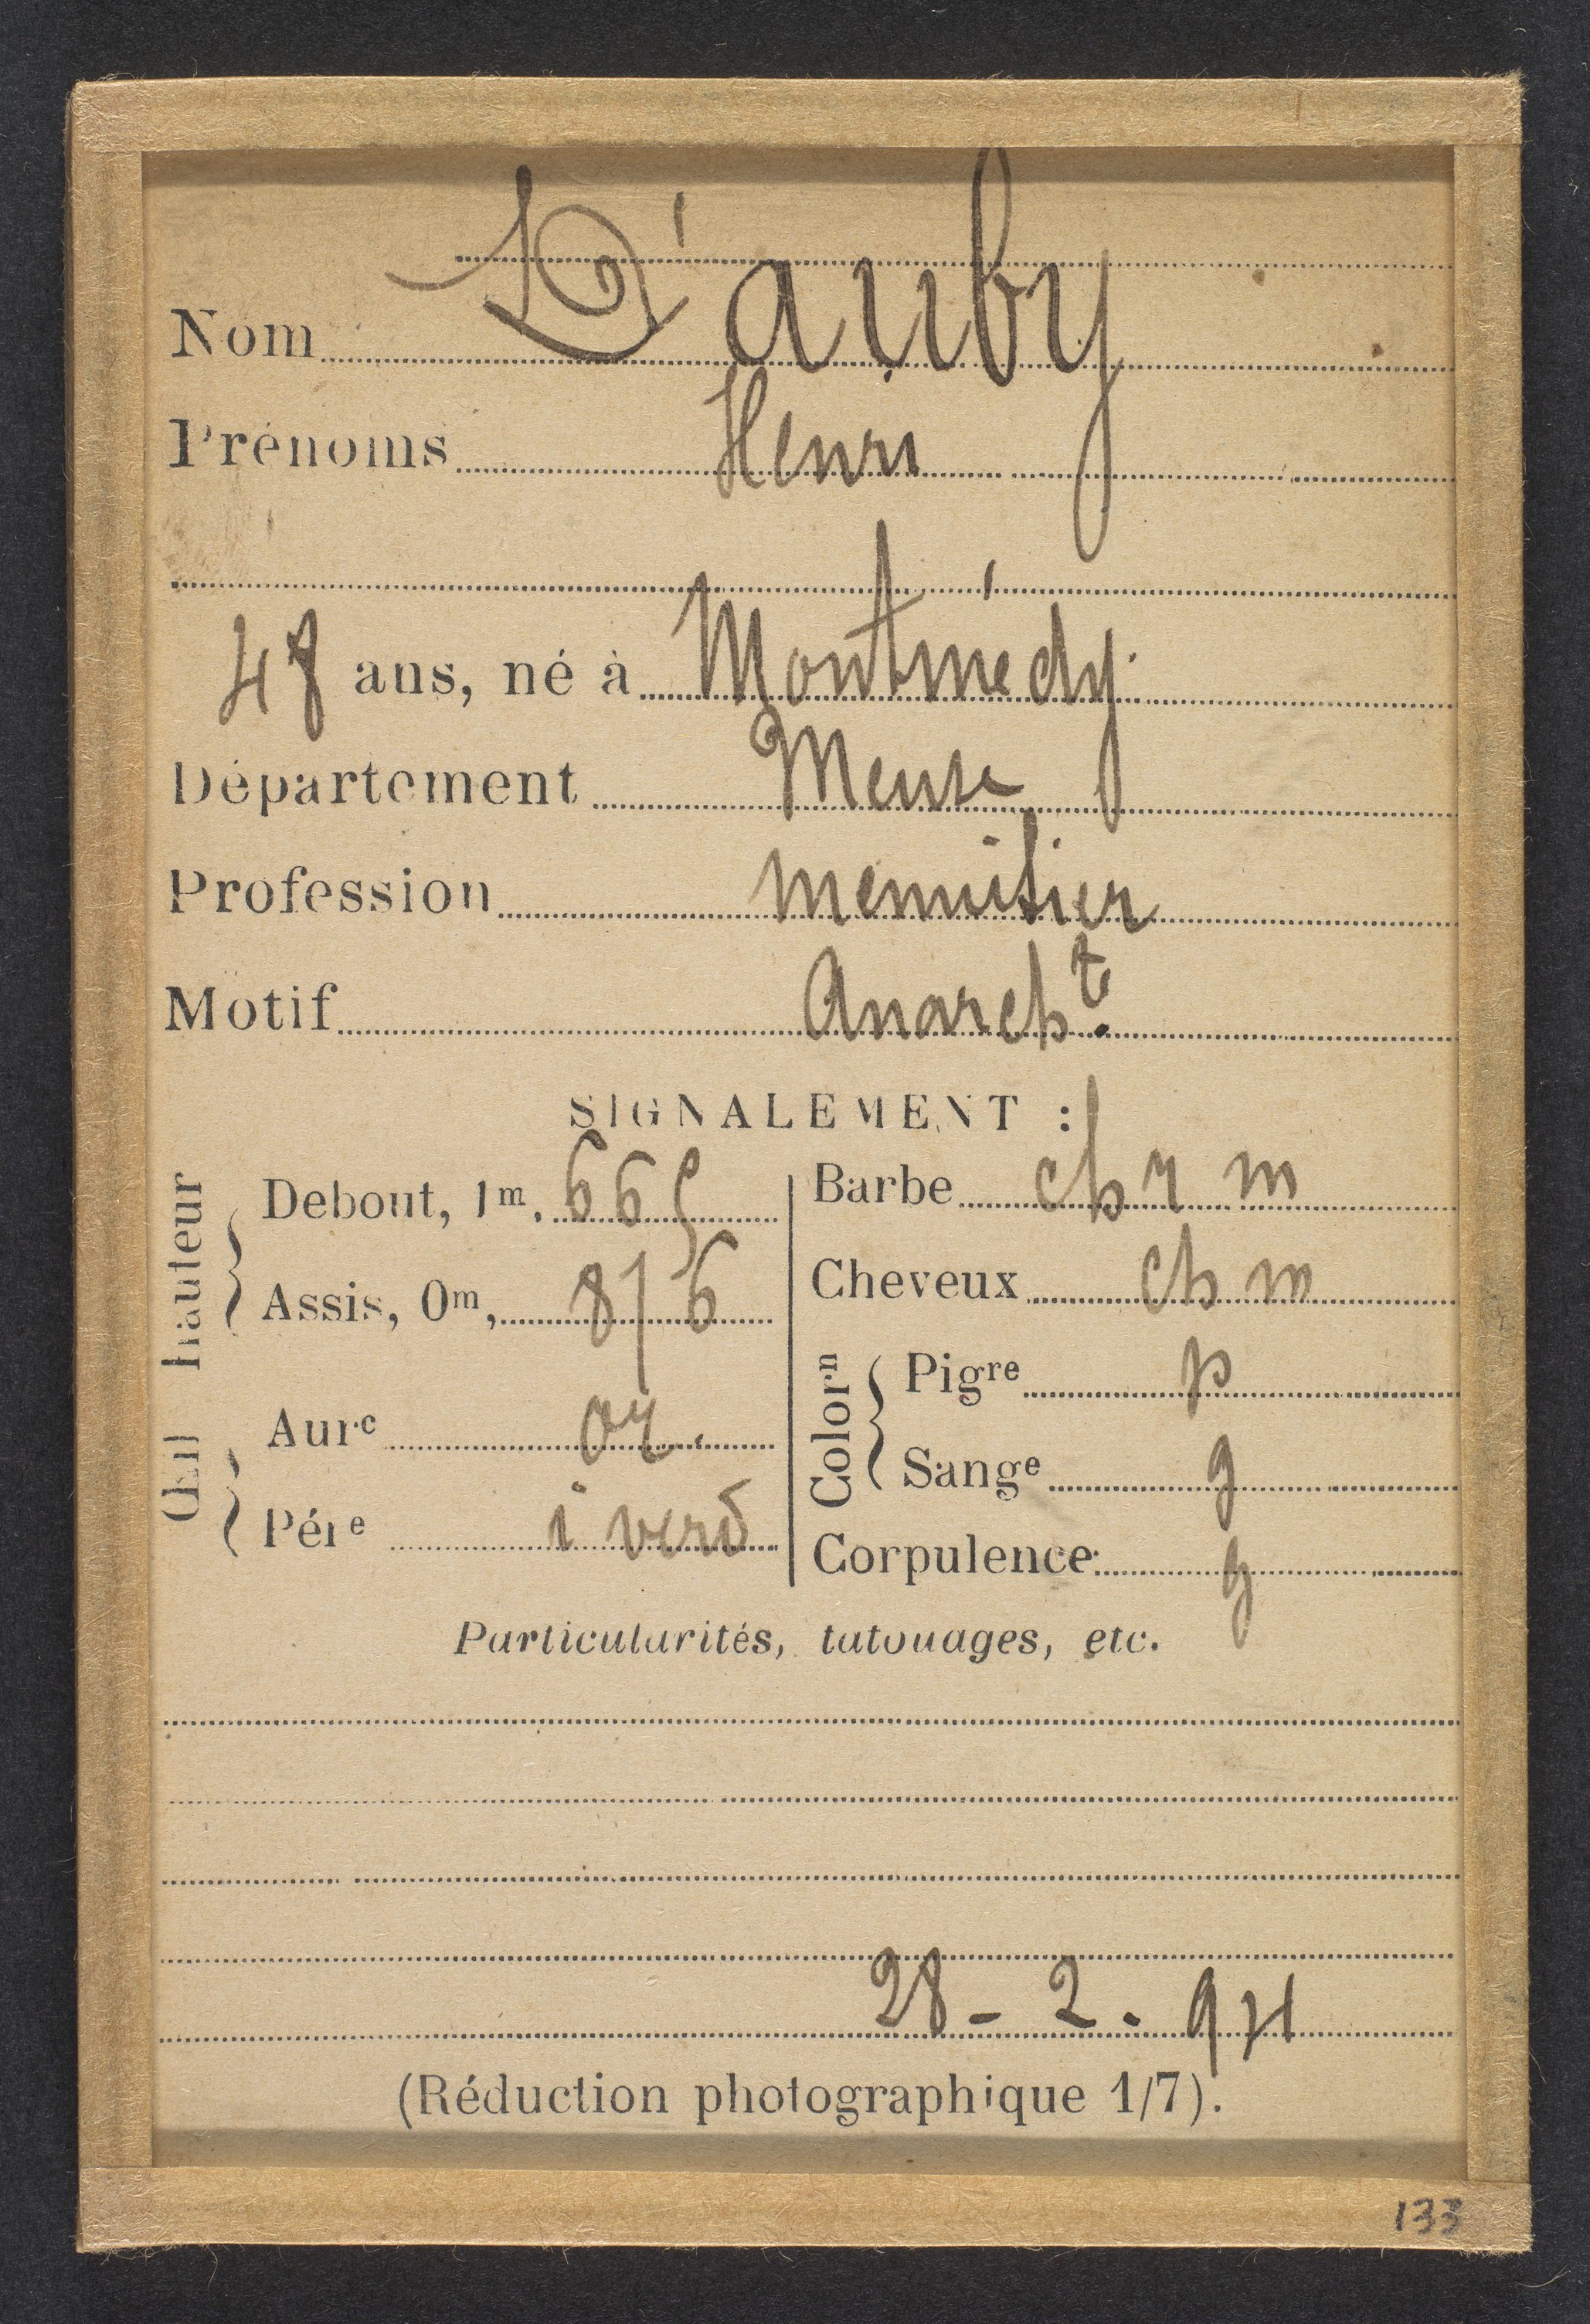 Nom D'auby
Prénoms Henri
48 ans, né à Montmédy.
Département Meuse
Profession menuisier
Motif Anarcht.
SIGNALEMENT :
hauteur
Debout, 1m, 665
Assis, 0m, 876
Œil
Aure or.
Pére i verd
Barbe ch r m
Cheveux ch m
Colorn
Pigre p
Sange g
Corpulence g
Particularités, tatouages, etc.
28 - 2 . 94
(Réduction photographique 1/7).
133